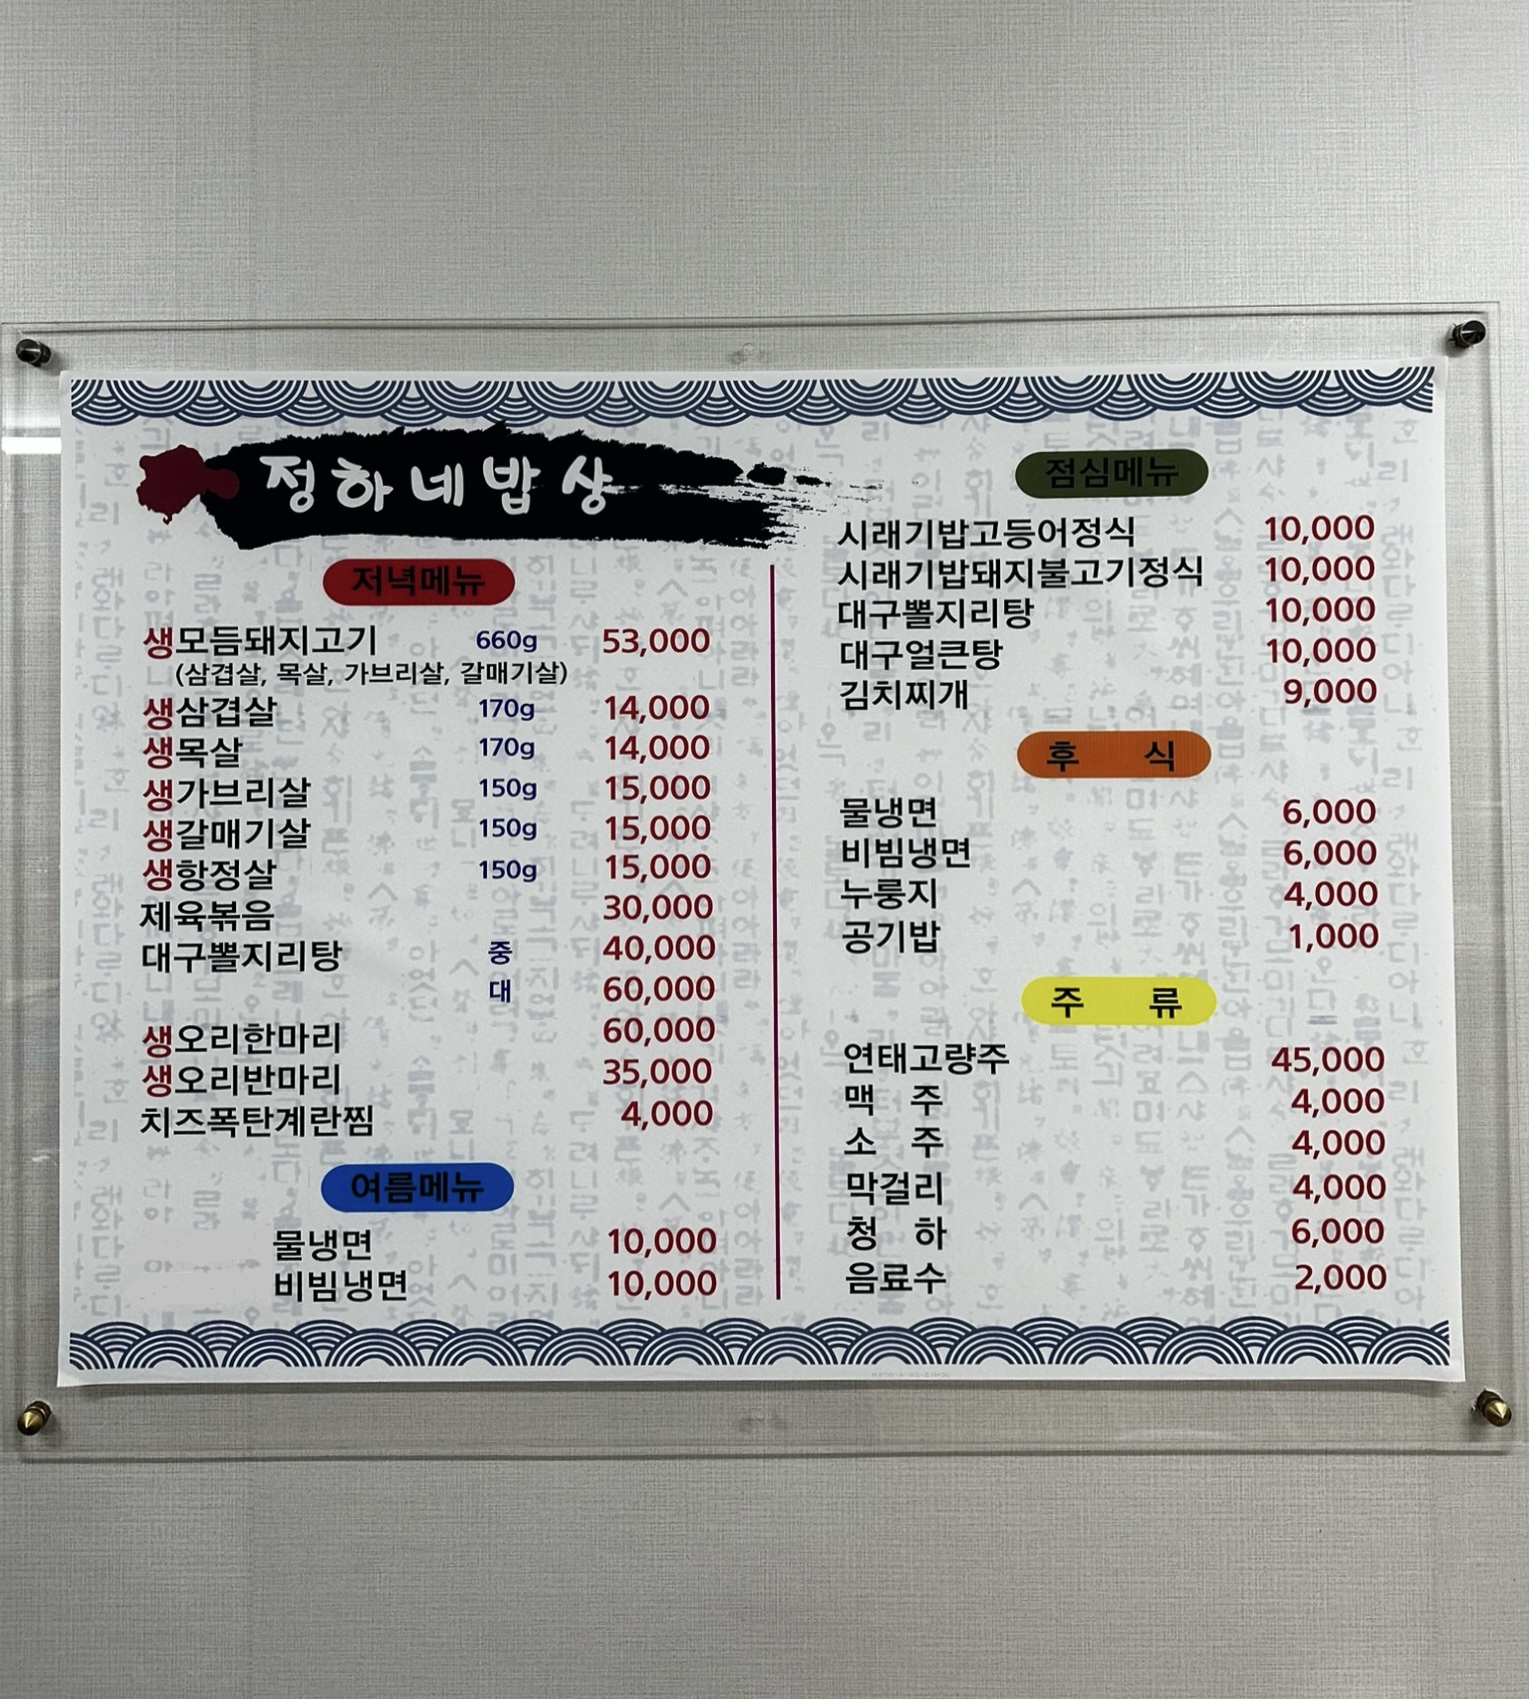 정하네밥상
저녁메뉴
생모듬돼지고기 660g 53,000
(삼겹살, 목살, 가브리살, 갈매기살)
생삼겹살 170g 14,000
생목살 170g 14,000
생가브리살 150g 15,000
생갈매기살 150g 15,000
생항정살 150g 15,000
제육볶음 30,000
대구뽈지리탕 중 40,000
대 60,000
생오리한마리 60,000
생오리반마리 35,000
치즈폭탄계란찜 4,000
여름메뉴
물냉면 10,000
비빔냉면 10,000
점심메뉴
시래기밥고등어정식 10,000
시래기밥돼지불고기정식 10,000
대구뽈지리탕 10,000
대구얼큰탕 10,000
김치찌개 9,000
후 식
물냉면 6,000
비빔냉면 6,000
누룽지 4,000
공기밥 1,000
주 류
연태고량주 45,000
맥 주 4,000
소 주 4,000
막걸리 4,000
청 하 6,000
음료수 2,000